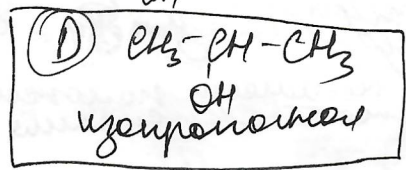 D CH₃-CH-CH₃
OH
изопропанол